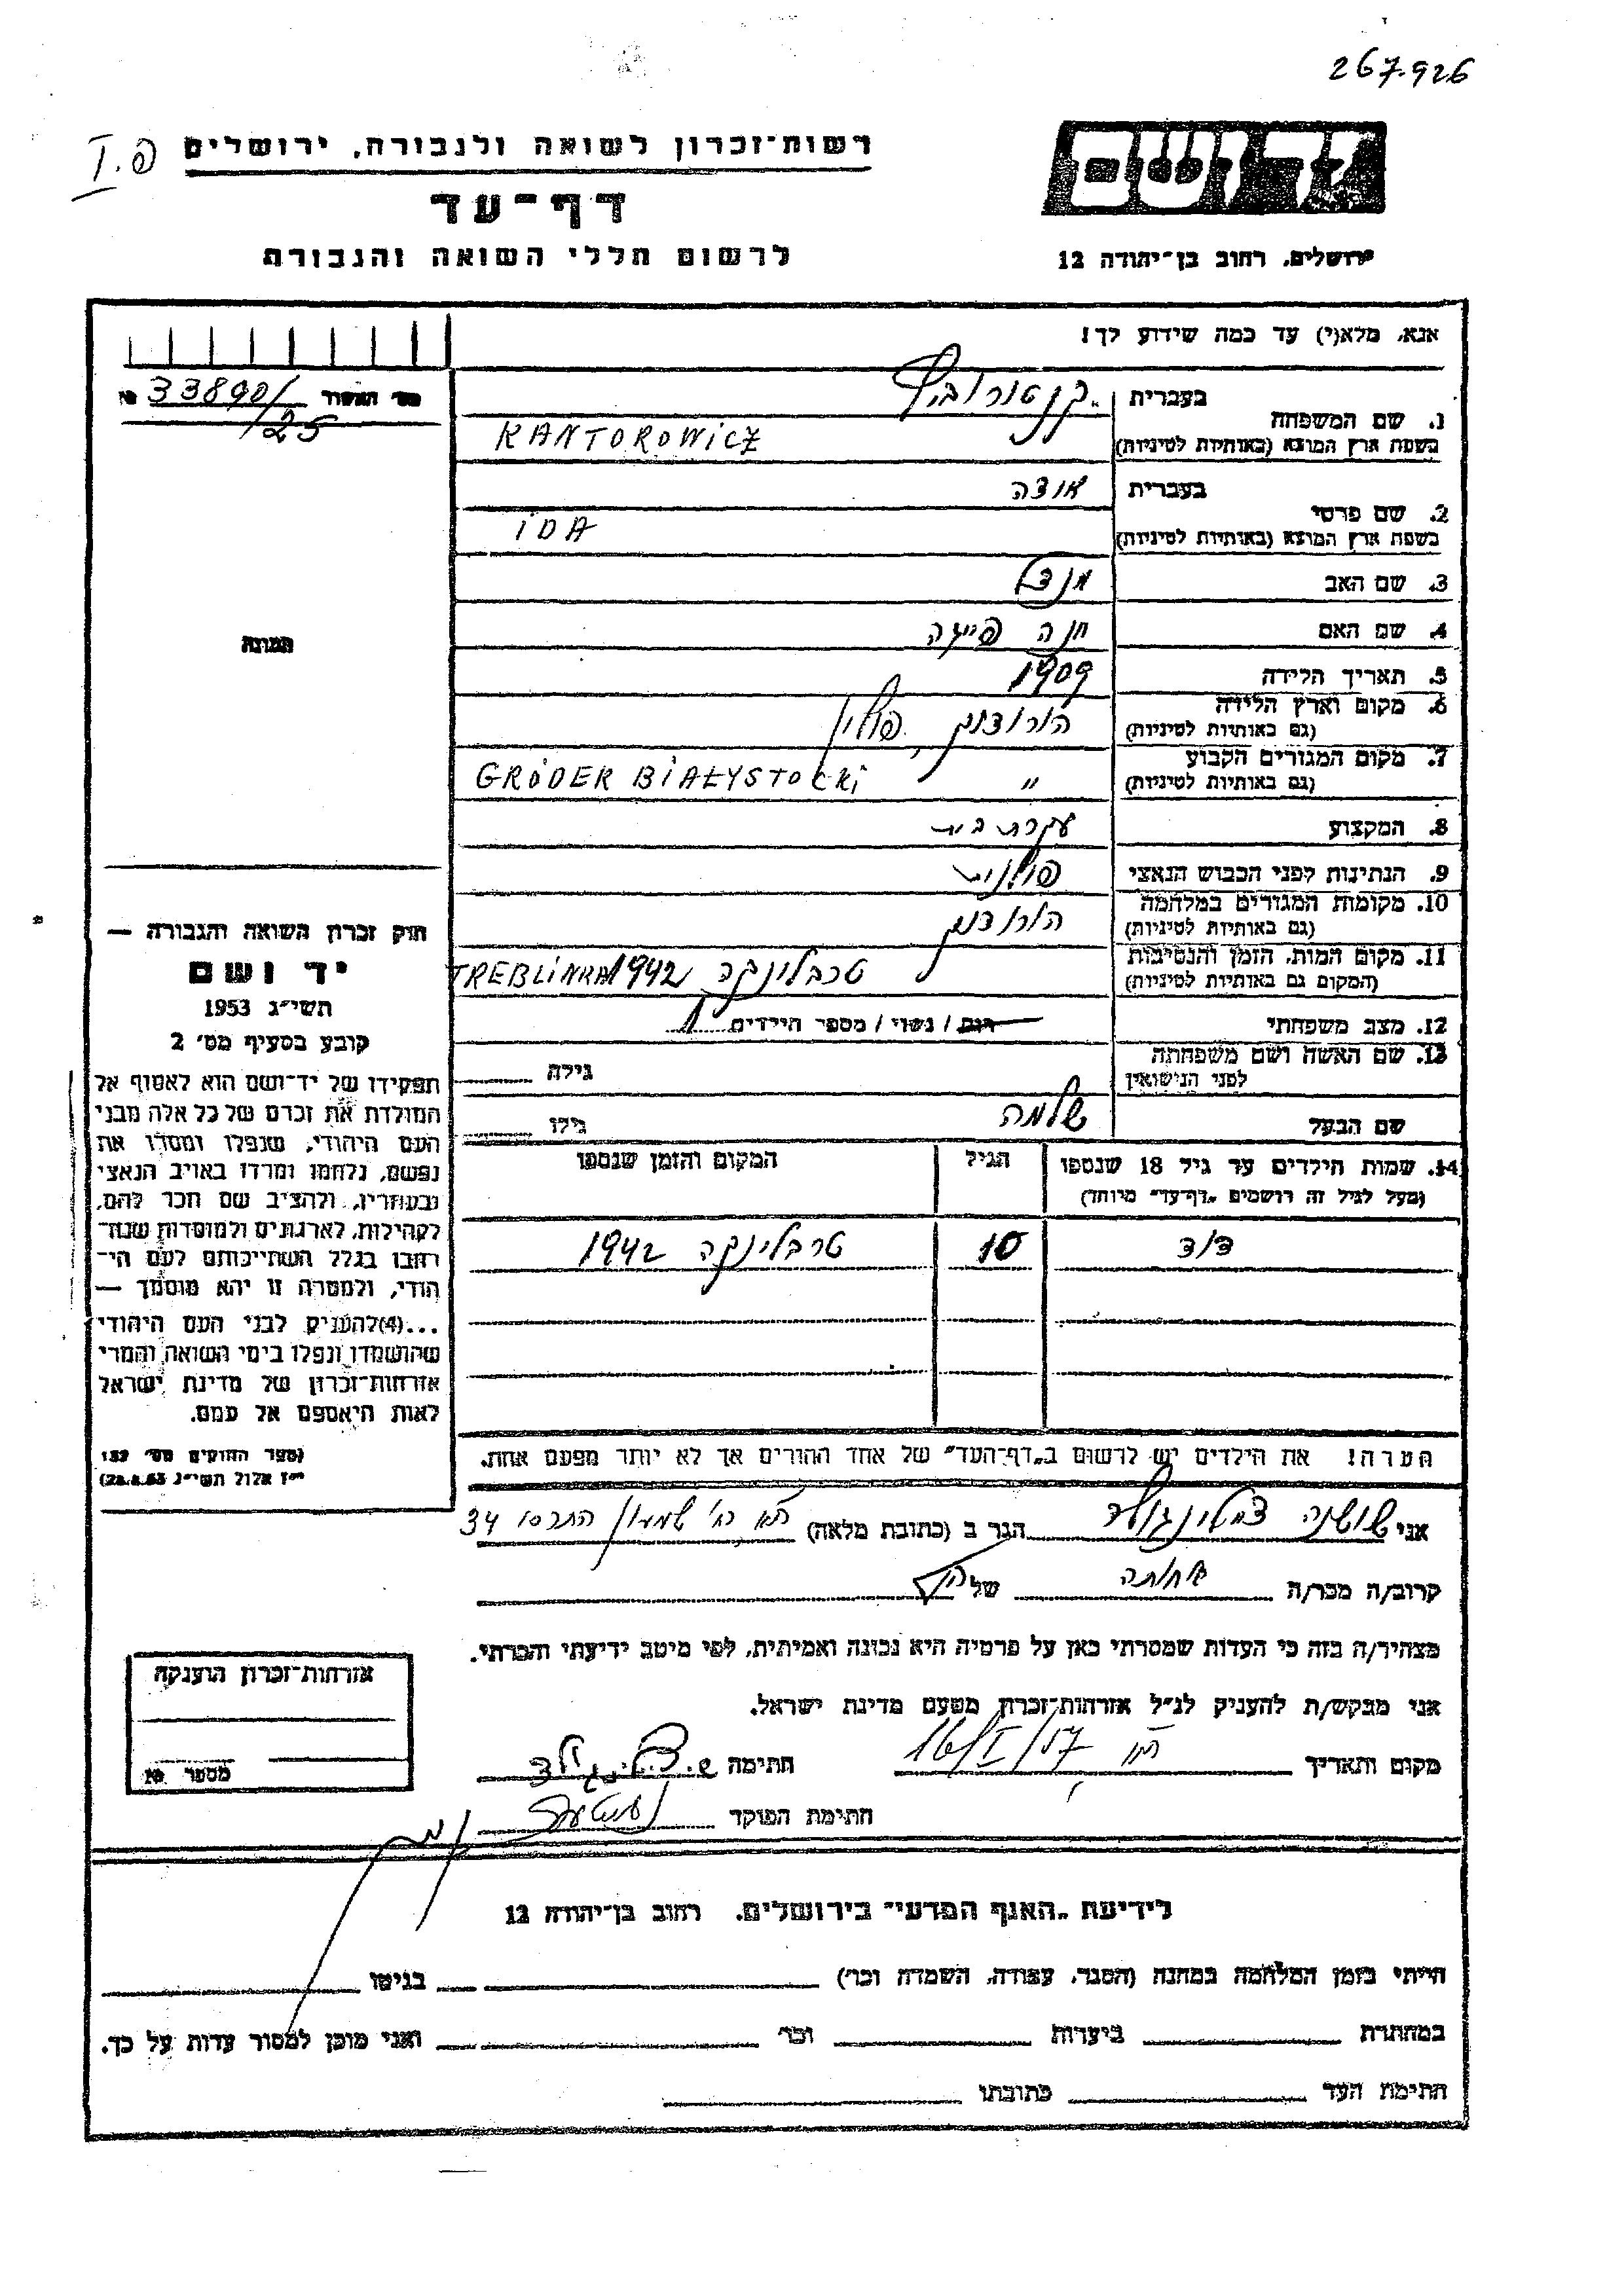 267.926
רשות־זכרון לשואה ולגבורה, ירושלים
פ. I
דף־עד
לרשום חללי השואה והגבורה
יד ושם
ירושלים, רחוב בן־יהודה 12
אנא, מלא(י) עד כמה שידוע לך!
מס׳ האשור 33890/25 №
1. שם המשפחה
בעברית קנטורוביץ
בשפת ארץ המוצא (באותיות לטיניות) KANTOROWiCZ
2. שם פרטי
בעברית אידה
בשפת ארץ המוצא (באותיות לטיניות) iDA
3. שם האב מנדל
4. שם האם חנה פייגה
5. תאריך הלידה 1909
6. מקום וארץ הלידה הורודוק, פולין
(גם באותיות לטיניות)
7. מקום המגורים הקבוע
(גם באותיות לטיניות) " GRÓDEK BiAŁYSTOCKi
8. המקצוע עקרת בית
9. הנתינות לפני הכבוש הנאצי פולנית
10. מקומות המגורים במלחמה הורודוק
(גם באותיות לטיניות)
11. מקום המות, הזמן והנסיבות טרבלינקה 1942 TREBLiNKA
(המקום גם באותיות לטיניות)
12. מצב משפחתי רווק / נשוי / מספר הילדים 1
13. שם האשה ושם משפחתה
לפני הנישואין
גילה
שם הבעל שלמה גילו
14. שמות הילדים עד גיל 18 שנספו הגיל המקום והזמן שנספו
(מעל לגיל זה רושמים „דף־עד״ מיוחד)
דוד 10 טרבלינקה 1942
הערה! את הילדים יש לרשום ב„דף־העד״ של אחד ההורים אך לא יותר מפעם אחת.
תמונה
חוק זכרון השואה והגבורה —
יד ושם
תשי״ג 1953
קובע בסעיף מס׳ 2
תפקידו של יד־ושם הוא לאסוף אל
המולדת את זכרם של כל אלה מבני
העם היהודי, שנפלו ומסרו את
נפשם, נלחמו ומרדו באויב הנאצי
ובעוזריו, ולהציב שם וזכר להם,
לקהילות, לארגונים ולמוסדות שנח־
רבו בגלל השתייכותם לעם הי־
הודי, ולמטרה זו יהא מוסמך —
...(4)להעניק לבני העם היהודי
שהושמדו ונפלו בימי השואה והמרי
אזרחות־זכרון של מדינת ישראל
לאות היאספם אל עמם.
(ספר החוקים מס׳ 132
י״ז אלול תשי״ג 28.8.53)
אני שושנה הגר ב (כתובת מלאה) שמעון התרסי 34
קרוב/ה מכר/ה אחותה של הנ״ל
מצהיר/ה בזה כי העדות שמסרתי כאן על פרטיה היא נכונה ואמיתית, לפי מיטב ידיעתי והכרתי.
אני מבקש/ת להעניק לנ״ל אזרחות־זכרון מטעם מדינת ישראל.
מקום ותאריך 16/I/57 חתימה
חתימת הפוקד
אזרחות־זכרון הוענקה
מספר №
לידיעת „האגף המדעי״ בירושלים, רחוב בן־יהודה 12
הייתי בזמן המלחמה במחנה (הסגר, עבודה, השמדה וכו׳) בגיטו
במחתרת ביערות וכו׳ ואני מוכן למסור עדות על כך.
חתימת העד כתובתו